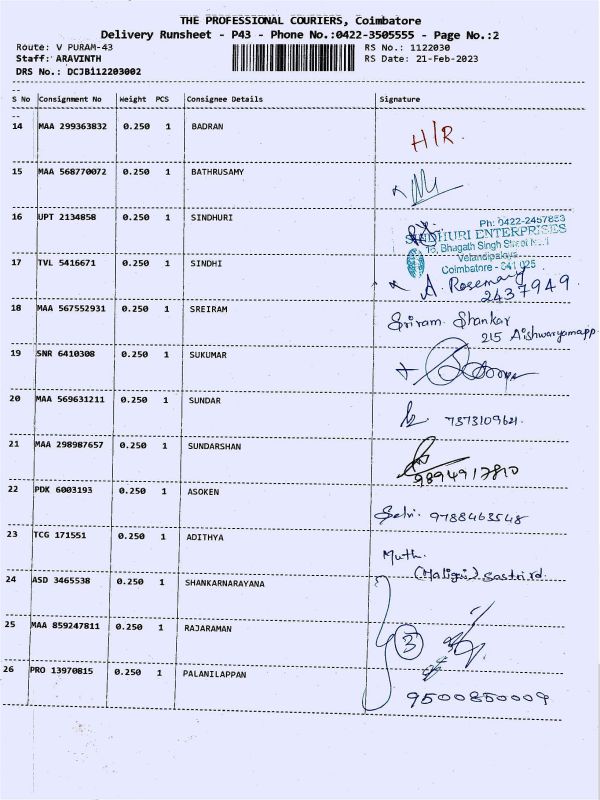 THE PROFESSIONAL COURIERS, Coimbatore
Delivery Runsheet - P43 - Phone No.:0422-3505555 - Page No.:2
Route: V PURAM-43 RS No.: 1122030
Staff: ARAVINTH RS Date: 21-Feb-2023
DRS No.: DCJBi12203002
S No Consignment No Weight PCS Consignee Details Signature
14 MAA 299363832 0.250 1 BADRAN H/R.
15 MAA 568770072 0.250 1 BATHRUSAMY
16 UPT 2134858 0.250 1 SINDHURI
Ph: 0422-2457853
SINDHURI ENTERPRISES
Bhagath Singh Street
Coimbatore - 641 025
17 TVL 5416671 0.250 1 SINDHI A. Rosemary
2437949.
18 MAA 567552931 0.250 1 SREIRAM Sriram Shankar
215 Aishwaryamapp.
19 SNR 6410308 0.250 1 SUKUMAR
20 MAA 569631211 0.250 1 SUNDAR 7373109621.
21 MAA 298987657 0.250 1 SUNDARSHAN
9894917810
22 PDK 6003193 0.250 1 ASOKEN Selvi. 9788463548
23 TCG 171551 0.250 1 ADITHYA Muth.
Sastri rd
24 ASD 3465538 0.250 1 SHANKARNARAYANA
25 MAA 859247811 0.250 1 RAJARAMAN 3
26 PRO 13970815 0.250 1 PALANILAPPAN
9500850009